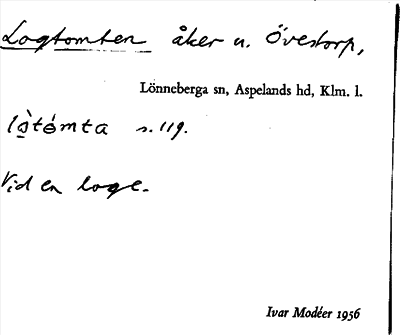 Logtomten åker u. Övestorp,
Lönneberga sn, Aspelands hd, Klm. l.
lò̲tómta s. 119.
Vid en loge.
Ivar Modéer 1956